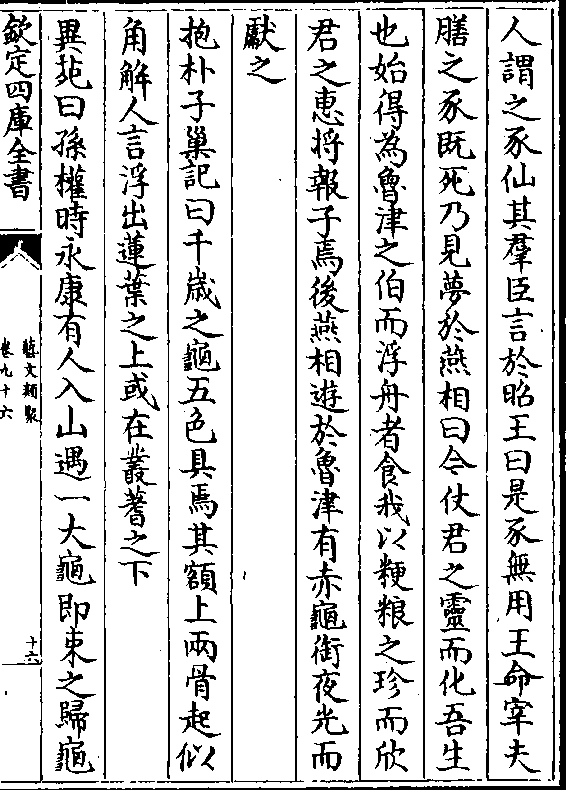 人謂之豕仙其羣臣言於昭王曰是豕無用王命宰夫
膳之豕既死乃見夢於燕相曰今仗君之靈而化吾生
也始得為魯津之伯而浮舟者食我以粳粮之珍而欣
君之惠将報子焉後燕相遊於魯津有赤龜銜夜光而
獻之
抱朴子巢記曰千歲之龜五色具焉其額上兩骨起似
角解人言浮出蓮葉之上或在叢蓍之下
異苑曰孫權時永康有人入山遇一大龜即束之歸龜
欽定四庫全書
藝文類聚
卷九十六
十六